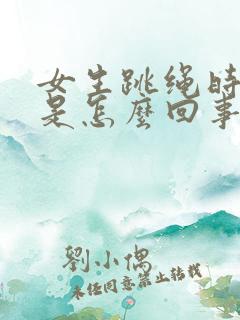 女生跳绳时
是怎麼回事
劉小偶
未经同意禁止转载